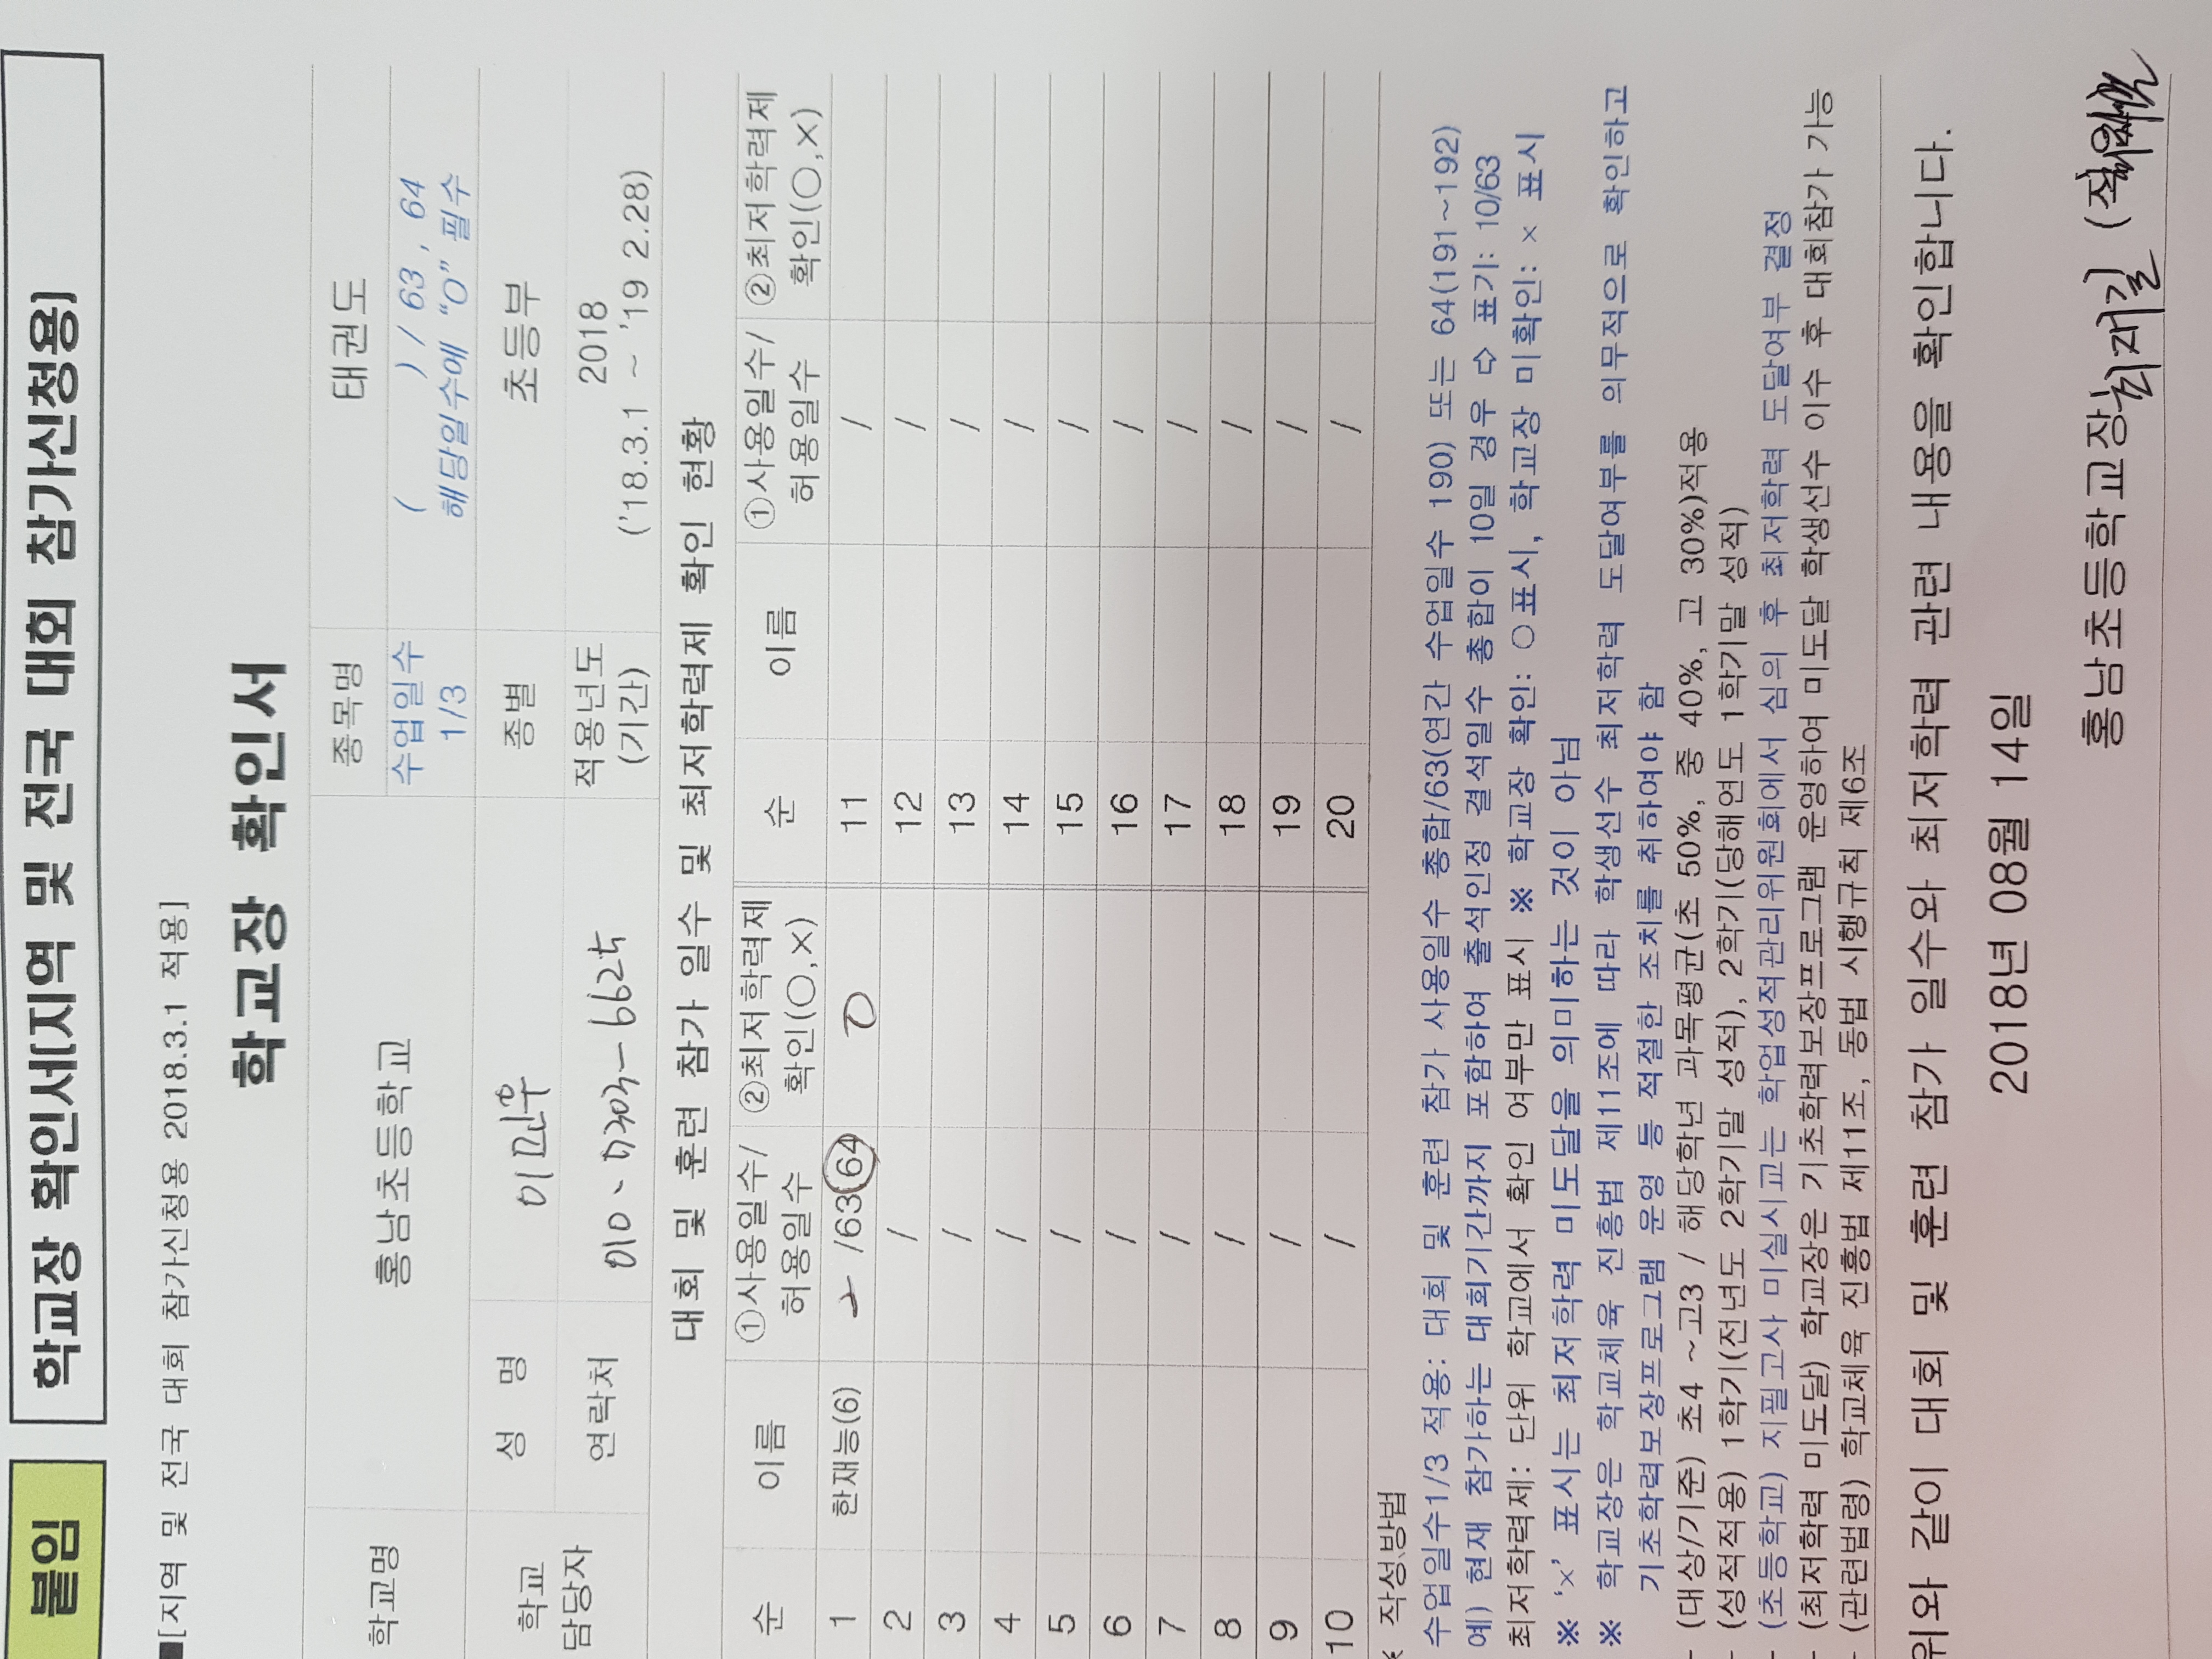 붙임
학교장 확인서[지역 및 전국 대회 참가신청용]
■[지역 및 전국 대회 참가신청용 2018.3.1 적용]
학교장 확인서
학교명 홍남초등학교 종목명 태권도
수업일수 1/3 ( ) / 63 , 64
해당일수에 "O" 필수
학교 담당자 성 명 이민우 종별 초등부
연락처 적용년도 (기간) 2018
('18.3.1 ~ '19 2.28)
대회 및 훈련 참가 일수 및 최저학력제 확인 현황
순 이름 ①사용일수/허용일수 ②최저학력제 확인(○,×) 순 이름 ①사용일수/허용일수 ②최저학력제 확인(○,×)
1 한재능(6) 2 /63,64 O 11 /
2 / 12 /
3 / 13 /
4 / 14 /
5 / 15 /
6 / 16 /
7 / 17 /
8 / 18 /
9 / 19 /
10 / 20 /
※ 작성방법
수업일수1/3 적용: 대회 및 훈련 참가 사용일수 총합/63(연간 수업일수 190) 또는 64(191~192)
예) 현재 참가하는 대회기간까지 포함하여 출석인정 결석일수 총합이 10일 경우 ⇨ 표기: 10/63
최저학력제: 단위 학교에서 확인 여부만 표시 ※ 학교장 확인: ○표시, 학교장 미확인: × 표시
※ '×' 표시는 최저학력 미도달을 의미하는 것이 아님
※ 학교장은 학교체육 진흥법 제11조에 따라 학생선수 최저학력 도달여부를 의무적으로 확인하고
기초학력보장프로그램 운영 등 적절한 조치를 취하여야 함
- (대상/기준) 초4 ~고3 / 해당학년 과목평균(초 50%, 중 40%, 고 30%)적용
- (성적적용) 1학기(전년도 2학기말 성적), 2학기(당해연도 1학기말 성적)
- (초등학교) 지필고사 미실시교는 학업성적관리위원회에서 심의 후 최저학력 도달여부 결정
- (최저학력 미도달) 학교장은 기초학력보장프로그램 운영하여 미도달 학생선수 이수 후 대회참가 가능
- (관련법령) 학교체육 진흥법 제11조, 동법 시행규칙 제6조
위와 같이 대회 및 훈련 참가 일수와 최저학력 관련 내용을 확인합니다.
2018년 08월 14일
홍남초등학교장 최재길